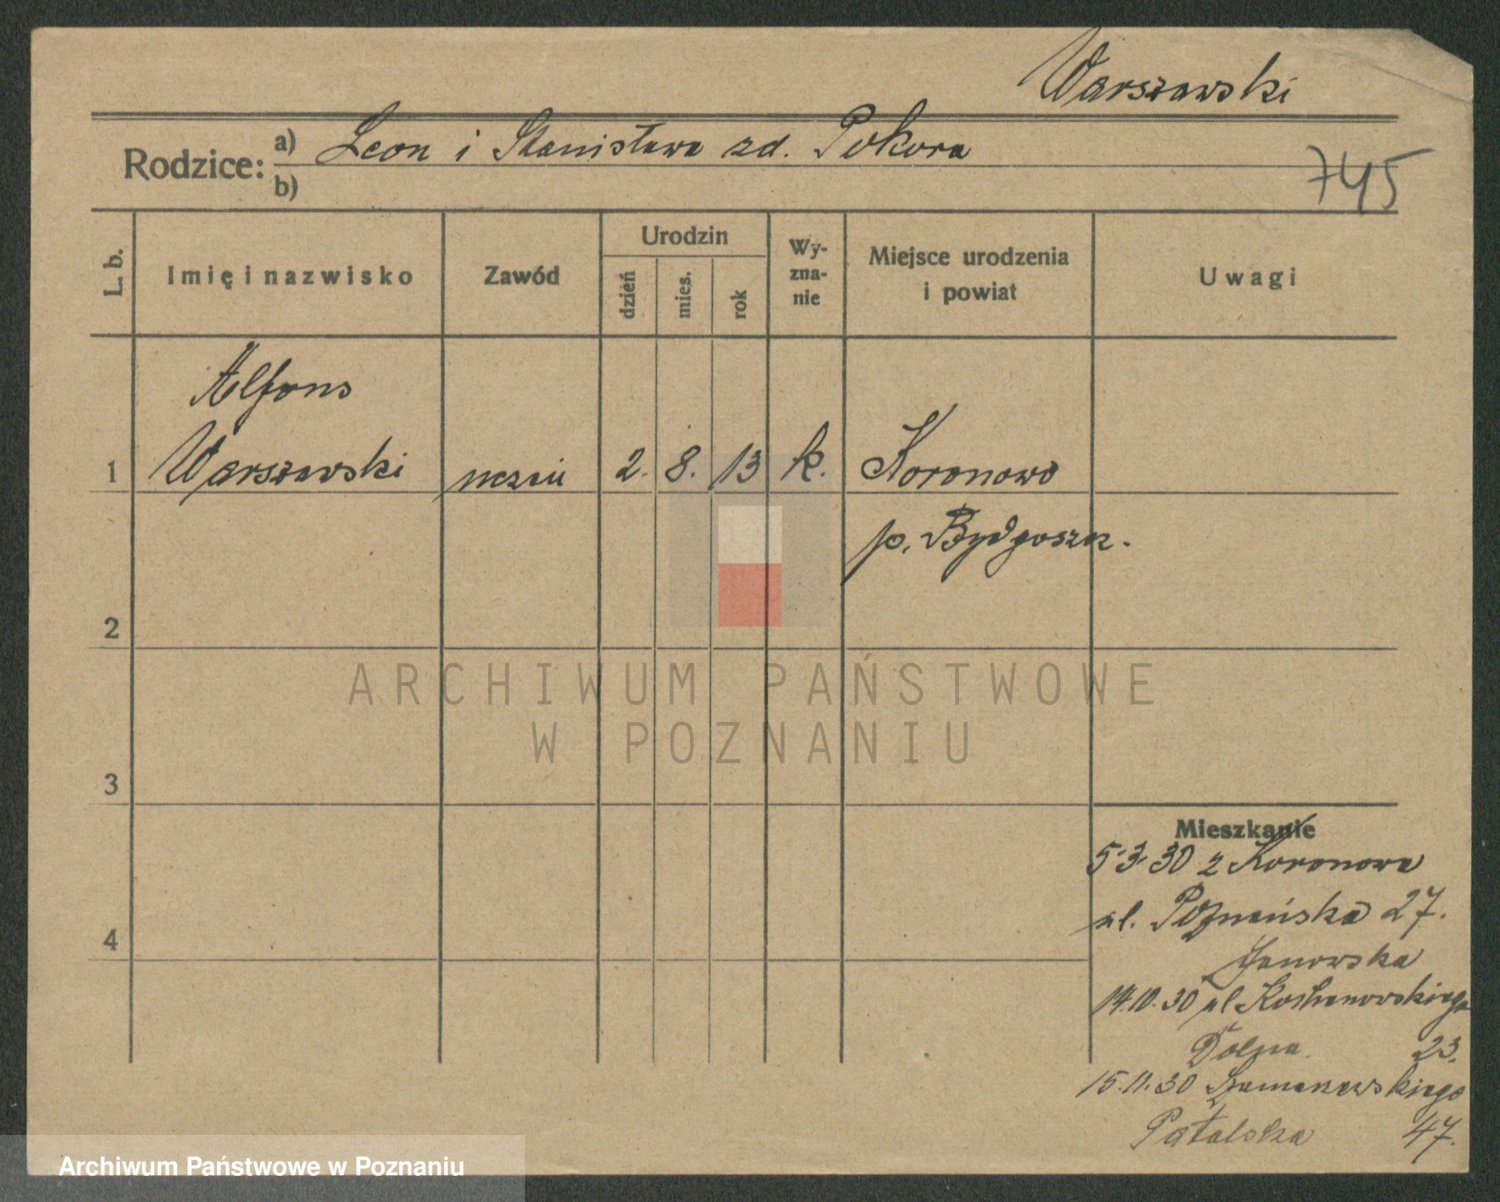 Warszawski
Rodzice: a) Leon i Stanisława zd. Pokora
b)
745
L. b.
Imię i nazwisko
Zawód
Urodzin
dzień
mies.
rok
Wy-
zna-
nie
Miejsce urodzenia
i powiat
Uwagi
Alfons
1 Warszawski uczeń 2. 8. 13 k. Koronowo
p. Bydgoszcz.
2
ARCHIWUM PAŃSTWOWE
W POZNANIU
3
Mieszkanie
5.3.30 z Koronowa
ul. Poznańska 27.
Janowska
4
14.10.30 ul Kochanowskiego
Dolna 23.
15.11.30 Szamarzewskiego
Patalska 47.
Archiwum Państwowe w Poznaniu